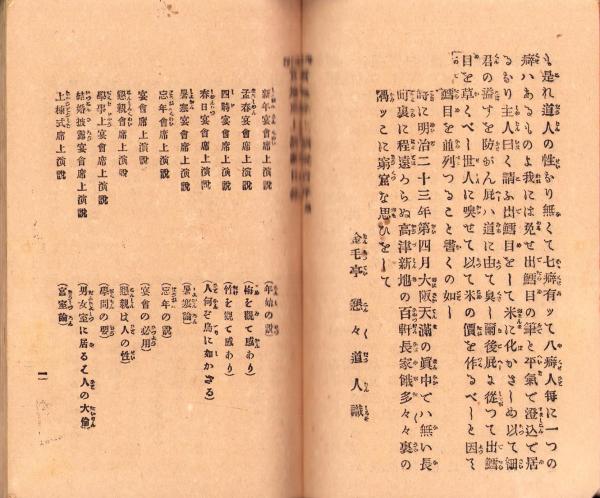 も是れ道人の性なり無くて七癖有ッて八癖人毎に一つの
癖ハあるものよ我には免せ出鱈目の筆と平氣で澄込で居
るなり主人曰く請ふ出鱈目をして米に化かさしめ以て
君の溢すを防がん屁ハ道に由て臭し爾後屁よ從つて出鱈
目を草くべし世人に喫せて以て米の價を作るべしと因て
鱈目を並列つること書くの如し
時に明治二十三年第四月大阪天滿の眞中でハ無い長
町裏に程遠からぬ高津新地の百軒長家餓多々々裏の
隅ッこに窮窟な思ひをして
金毛亭 戀々道人識
新年宴會席上演説 (年始の説)
孟春宴會席上演説 (梅を觀て感あり)
四時宴會席上演説 (竹を觀て感あり)
春日宴會席上演説 (人何ぞ鳥に如かざる)
暑寒宴會席上演説 (暑寒論)
忘年宴會席上演説 (忘年の説)
宴會席上演説 (宴會の必用)
懇親會席上演説 (懇親は人の性)
學事上宴會席上演説 (學問の要)
結婚披露宴會席上演説 (男女室に居るハ人の大倫)
上棟式席上演説 (宮室論)
一